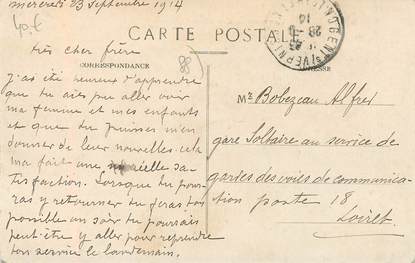 mercredi 23 septembre 1914
40 f
88
CARTE POSTALE
CORRESPONDANCE
ADRESSE
NOGENT S/ VERNI
23 -9
14
très cher frère
j'ai été heureux d'apprendre
que tu aies pu aller voir
ma femme et mes enfants
et que tu puisses m'en
donner de leur nouvelles. cela
m'a fait une réelle sa-
tisfaction. Lorsque tu pour-
ras y retourner tu feras ton
possible un soir tu pourrais
peut-être y aller pour reprendre
ton service le lendemain.
Mr Bobezeau Alfred
gare Solitaire au service de
gardes des voies de communica-
tion poste 18
Loiret